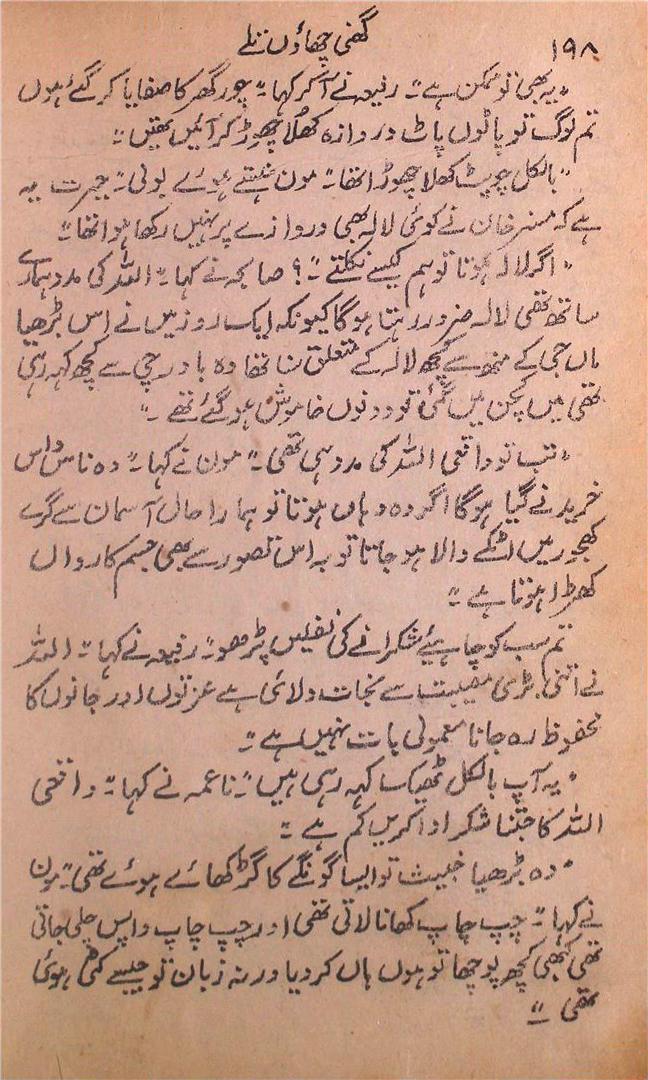 ۱۹۸
گھنی چھاؤں تلے
"یہ بھی تو ممکن ہے"۔ رفیعہ نے آ کر کہا۔ "چور گھر کا صفایا کر گئے ہوں
تم لوگ تو پاٹوں پاٹ دروازہ کھلا چھوڑ کر آئیں تھیں"۔
"بالکل چوپٹ کھلا چھوڑا تھا"۔ مون ہنستے ہوئے بولی۔ "حیرت یہ
ہے کہ مسٹر خان نے کوئی لالہ بھی دروازے پر نہیں رکھا ہوا تھا"۔
"اگر لالہ ہوتا تو ہم کیسے نکلتے"۔؟ صاجہ نے کہا۔ "اللہ کی مدد ہمارے
ساتھ تھی لالہ ضرور رہتا ہو گا کیونکہ ایک روز میں نے اس بڑھیا
ماں جی کے منھ سے کچھ لالہ کے متعلق سنا تھا وہ باورچی سے کچھ کہہ رہی
تھی میں کچن میں گئی تو دونوں خاموش ہو گئے تھے۔"
"تب تو واقعی اللہ کی مدد ہی تھی"۔ مون نے کہا۔ "وہ ناس واس
خریدنے گیا ہو گا اگر وہ وہاں ہوتا تو ہمارا حال آسمان سے گرے
کھجور میں اٹکے والا ہو جاتا توبہ اس تصور سے بھی جسم کا رواں
کھڑا ہوتا ہے"۔
تم سب کو چاہیئے شکرانے کی نفلیں پڑھو"۔ رفیعہ نے کہا۔ "اللہ
نے اتنی بڑی مصیبت سے نجات دلائی ہے عزتوں اور جانوں کا
محفوظ رہ جانا معمولی بات نہیں ہے"۔
"یہ آپ بالکل ٹھیک کہہ رہی ہیں"۔ ناعمہ نے کہا۔ "واقعی
اللہ کا جتنا شکر ادا کریں کم ہے"۔
"وہ بڑھیا خبیث تو ایسا گونگے کا گڑ کھائے ہوئے تھی"۔ مون
نے کہا۔ "چپ چاپ کھانا لاتی تھی اور چپ چاپ واپس چلی جاتی
تھی کبھی کچھ پوچھا تو ہوں ہاں کر دیا ورنہ زبان تو جیسے کٹی ہوئی
تھی"۔